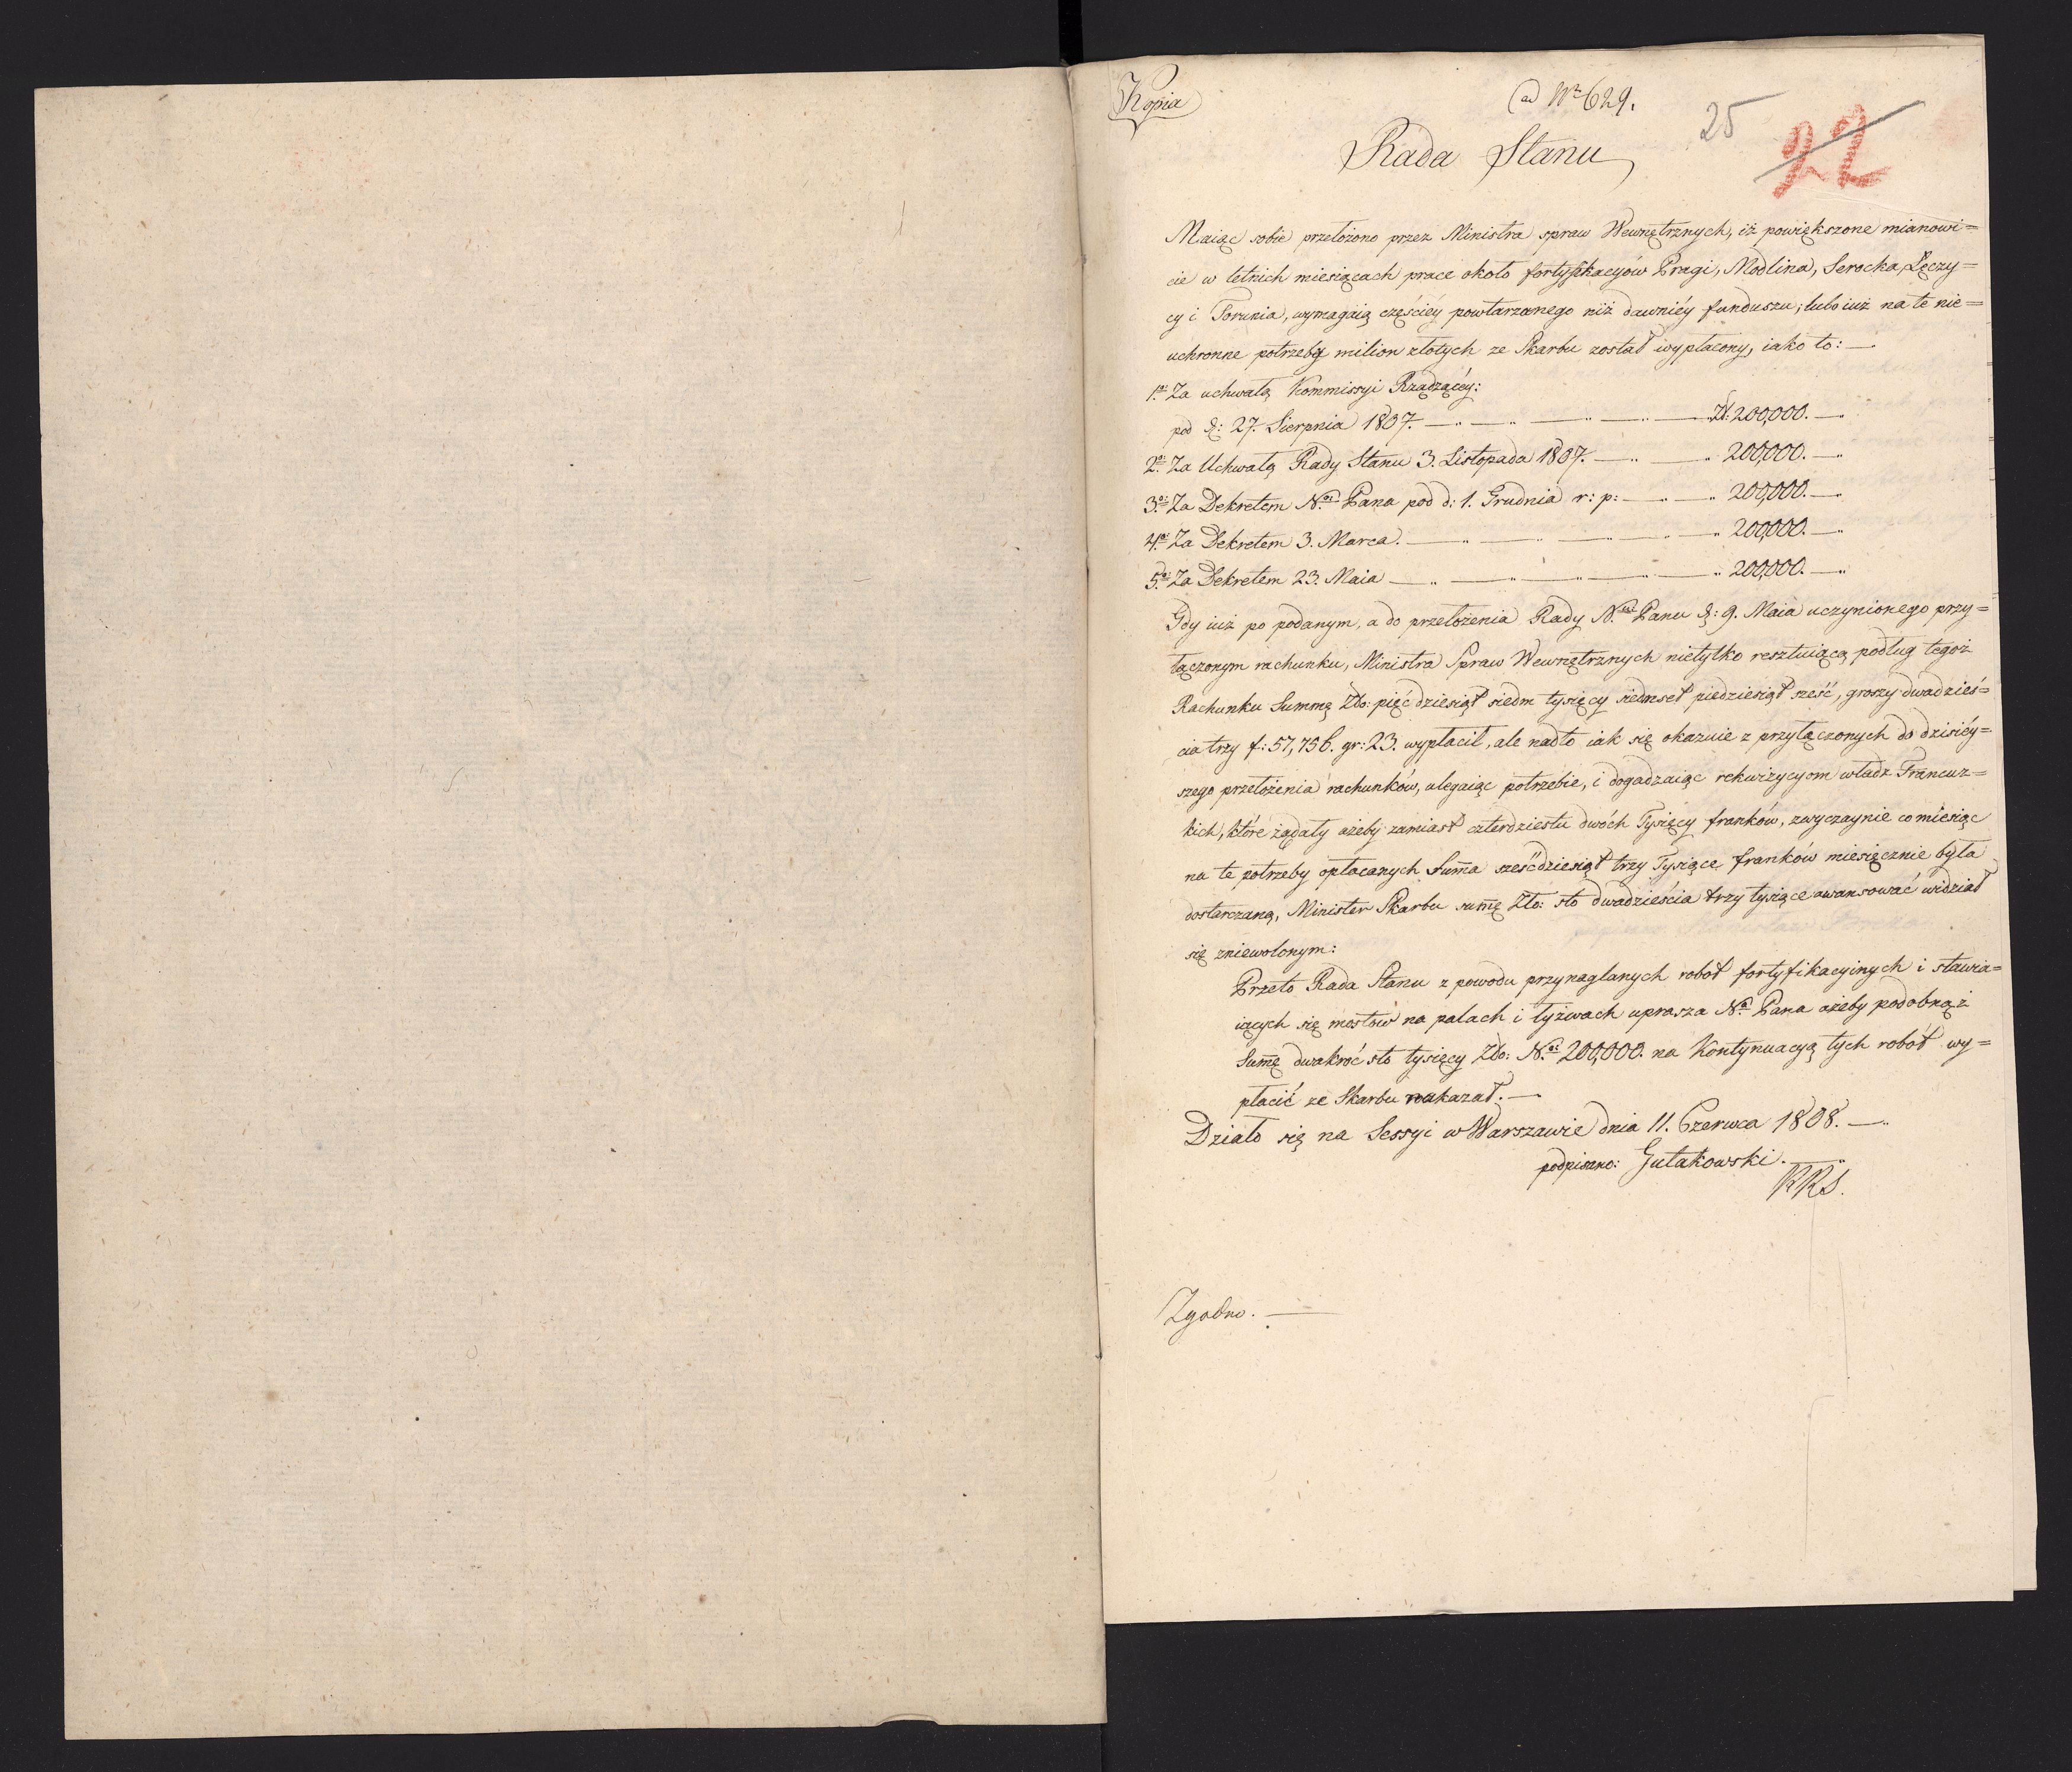 Kopia
ad Nr 629.
25
22
Rada Stanu
Maiąc sobie przełożono przez Ministra spraw Wewnętrznych, iż powiększone mianowi=
cie w letnich miesiącach prace około fortyfikacyów Pragi, Modlina, Serocka, Łęczy=
cy i Torunia, wymagaią częściéy powtarzanego niż dawniéy funduszu; lubo iuż na te nie=
uchronne potrzeby milion złotych ze Skarbu został wypłacony, iako to: —
1o Za uchwałą Kommissyi Rządzącéy:
pod d: 27. Sierpnia 1807. — „ — „ — „ — „ — Zł: 200,000. —
2o Za Uchwałą Rady Stanu 3. Listopada 1807. — „ — „ 200,000. —
3o Za Dekretem N.o Pana pod d: 1. Grudnia r: p: — „ — „ 200,000. —
4o Za Dekretem 3. Marca. — „ — „ — „ — „ 200,000. —
5o Za Dekretem 23. Maia — „ — „ — „ — „ 200,000. —
Gdy iuż po podanym, a do przełożenia Rady N. Panu d: 9. Maia uczynionego przy=
łączonym rachunku, Ministra Spraw Wewnętrznych nietylko resztuiącą podług tegoż
Rachunku Summę Złо: pięćdziesiąt siedm tysięcy siedmset piedziesiąt sześć, groszy dwadzieś=
cia trzy f: 57,756. gr: 23. wypłacił, ale nadto iak się okazuie z przyłączonych do dzisiéy=
szego przełożenia rachunków, ulegaiąc potrzebie, i dogadzaiąc rekwizycyom władz Francuz=
kich, które żądały ażeby zamiast czterdziestu dwóch Tysięcy franków, zwyczaynie co miesiąc
na te potrzeby opłacanych Suma sześćdziesiąt trzy Tysiące franków miesięcznie była
dostarczaną, Minister Skarbu sumę Zło: sto dwadzieścia trzy tysiące awansować widział
się zniewolonym:
Przeto Rada Stanu z powodu przynaglanych robot fortyfikacyinych i stawia=
iących się mostów na palach i łyżwach uprasza N.o Pana ażeby podobnąż
Sumę dwakroć sto tysięcy Zło: N.o 200,000. na Kontynuacyą tych robót wy=
płacić ze Skarbu nakazał. —
Działo się na Sessyi w Warszawie dnia 11. Czerwca 1808. —
podpisano: Gutakowski.
RRS.
Zgodno. —